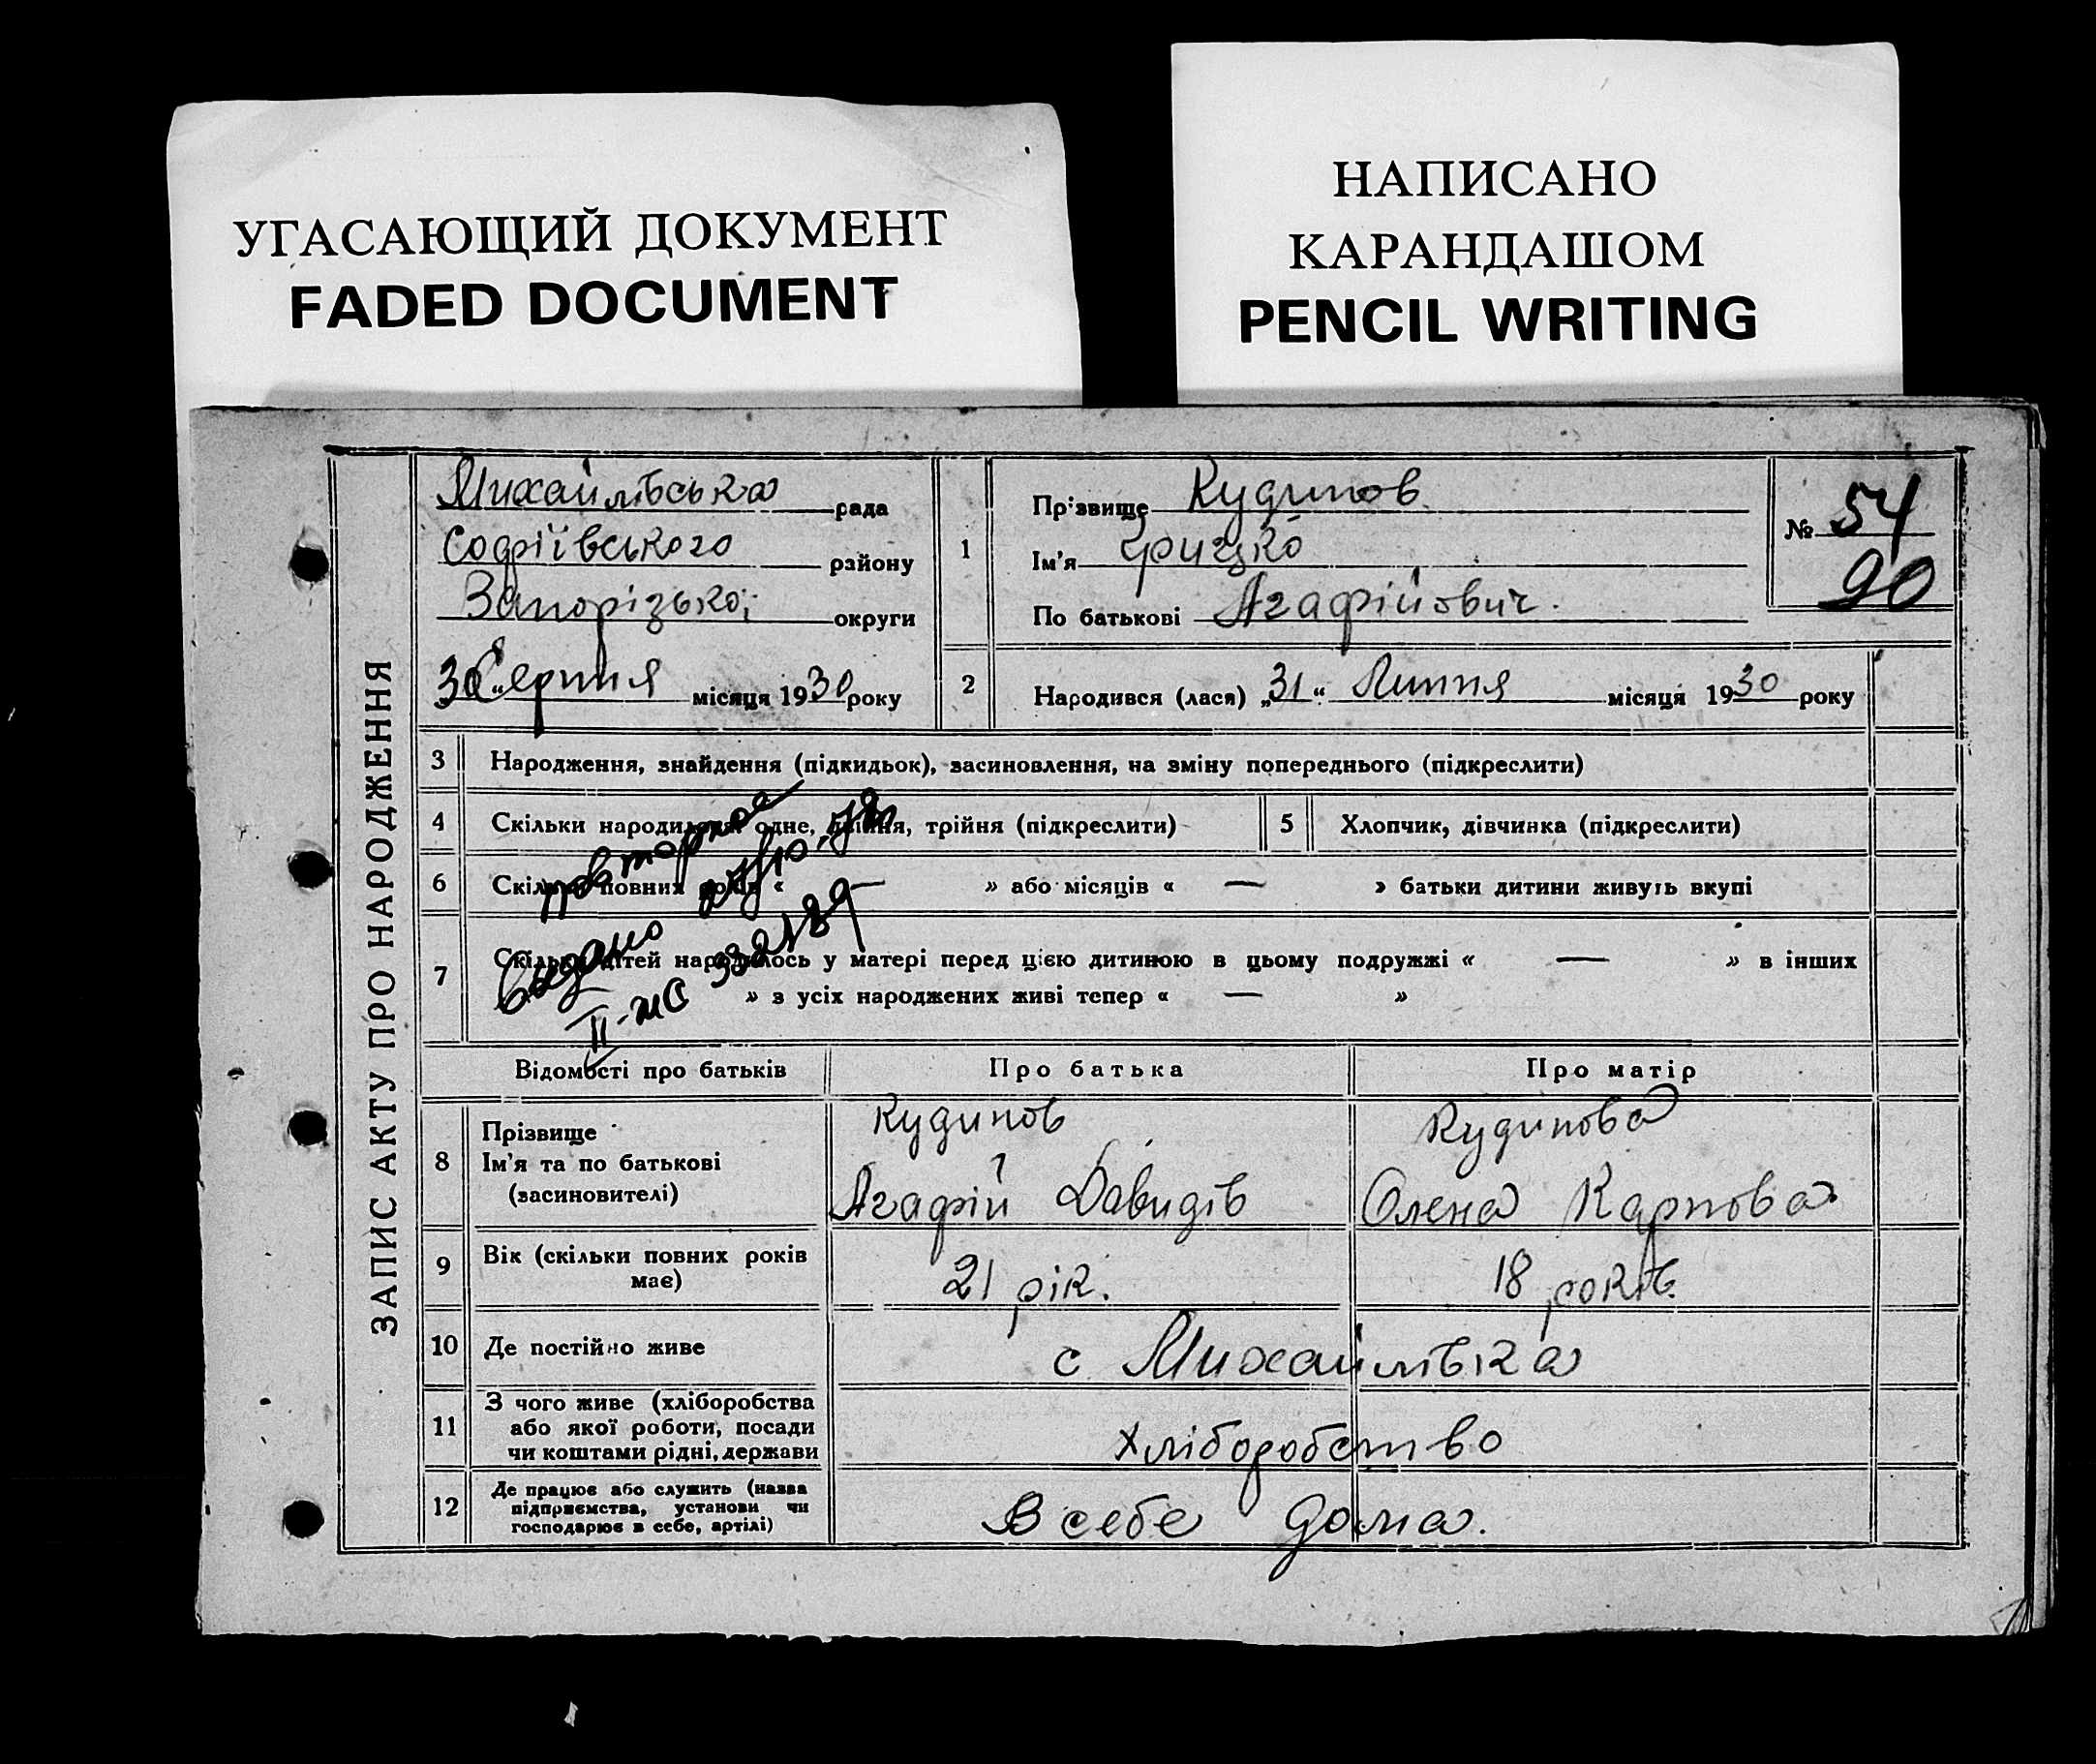 УГАСАЮЩИЙ ДОКУМЕНТ
FADED DOCUMENT
НАПИСАНО
КАРАНДАШОМ
PENCIL WRITING
ЗАПИС АКТУ ПРО НАРОДЖЕННЯ
Михайлівська рада
Софіївського району
Запорізької округи
30 „Серпня місяця 1930 року
1
Прізвище Кудинов
Ім'я Грицько
По батькові Агафійович.
№ 54
90
2 Народився (лася) „31“ Липня місяця 1930 року
3 Народження, знайдення (підкидьок), засиновлення, на зміну попереднього (підкреслити)
4 Скільки народилося одне, двійня, трійня (підкреслити)
5 Хлопчик, дівчинка (підкреслити)
6 Скільки повних років « — » або місяців « — » батьки дитини живуть вкупі
7 Скільки дітей народилось у матері перед цією дитиною в цьому подружжі « — » в інших
» з усіх народжених живі тепер « — »
Выдано повторное
II-ЖС
Відомості про батьків Про батька Про матір
8 Прізвище
Ім'я та по батькові
(засиновителі)
Кудинов
Агафій Давидів
Кудинова
Олена Карпова
9 Вік (скільки повних років
має)
21 рік. 18 років.
10 Де постійно живе с Михайлівка
11 З чого живе (хліборобства
або якої роботи, посади
чи коштами рідні, держави
Хліборобство
12 Де працює або служить (назва
підприємства, установи чи
господарює в себе, артілі)
В себе дома.